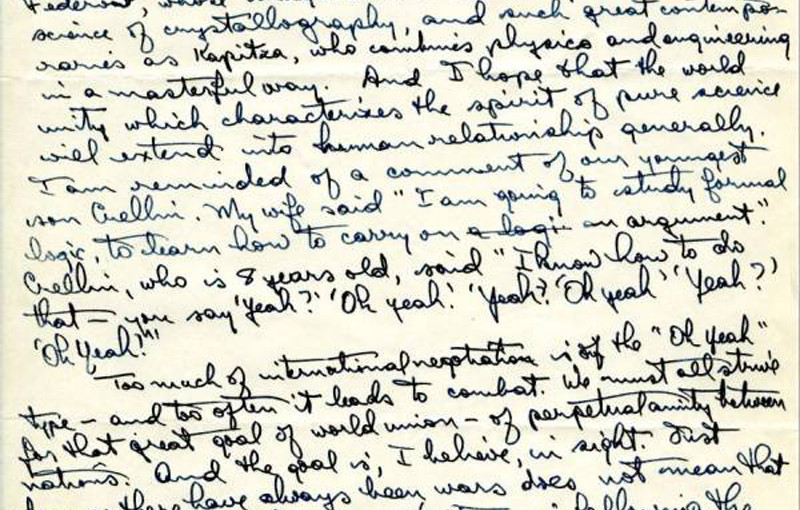 science of crystallography, and such great contempo-
raries as Kapitza, who combines physics and engineering
in a masterful way. And I hope that the world
unity which characterizes the spirit of pure science
will extend into human relationships generally.
I am reminded of a comment of our youngest
son Crellin. My wife said "I am going to study formal
logic, to learn how to carry on a logi an argument."
Crellin, who is 8 years old, said "I know how to do
that — you say 'Yeah?' 'Oh yeah!' 'Yeah?' 'Oh yeah' 'Yeah?'
'Oh Yeah!'"
Too much of international negotiation is of the "Oh Yeah"
type — and too often it leads to combat. We must all strive
for that great goal of world union — of perpetual amity between
nations. And the goal is, I believe, in sight. Just
there have always been wars does not mean that